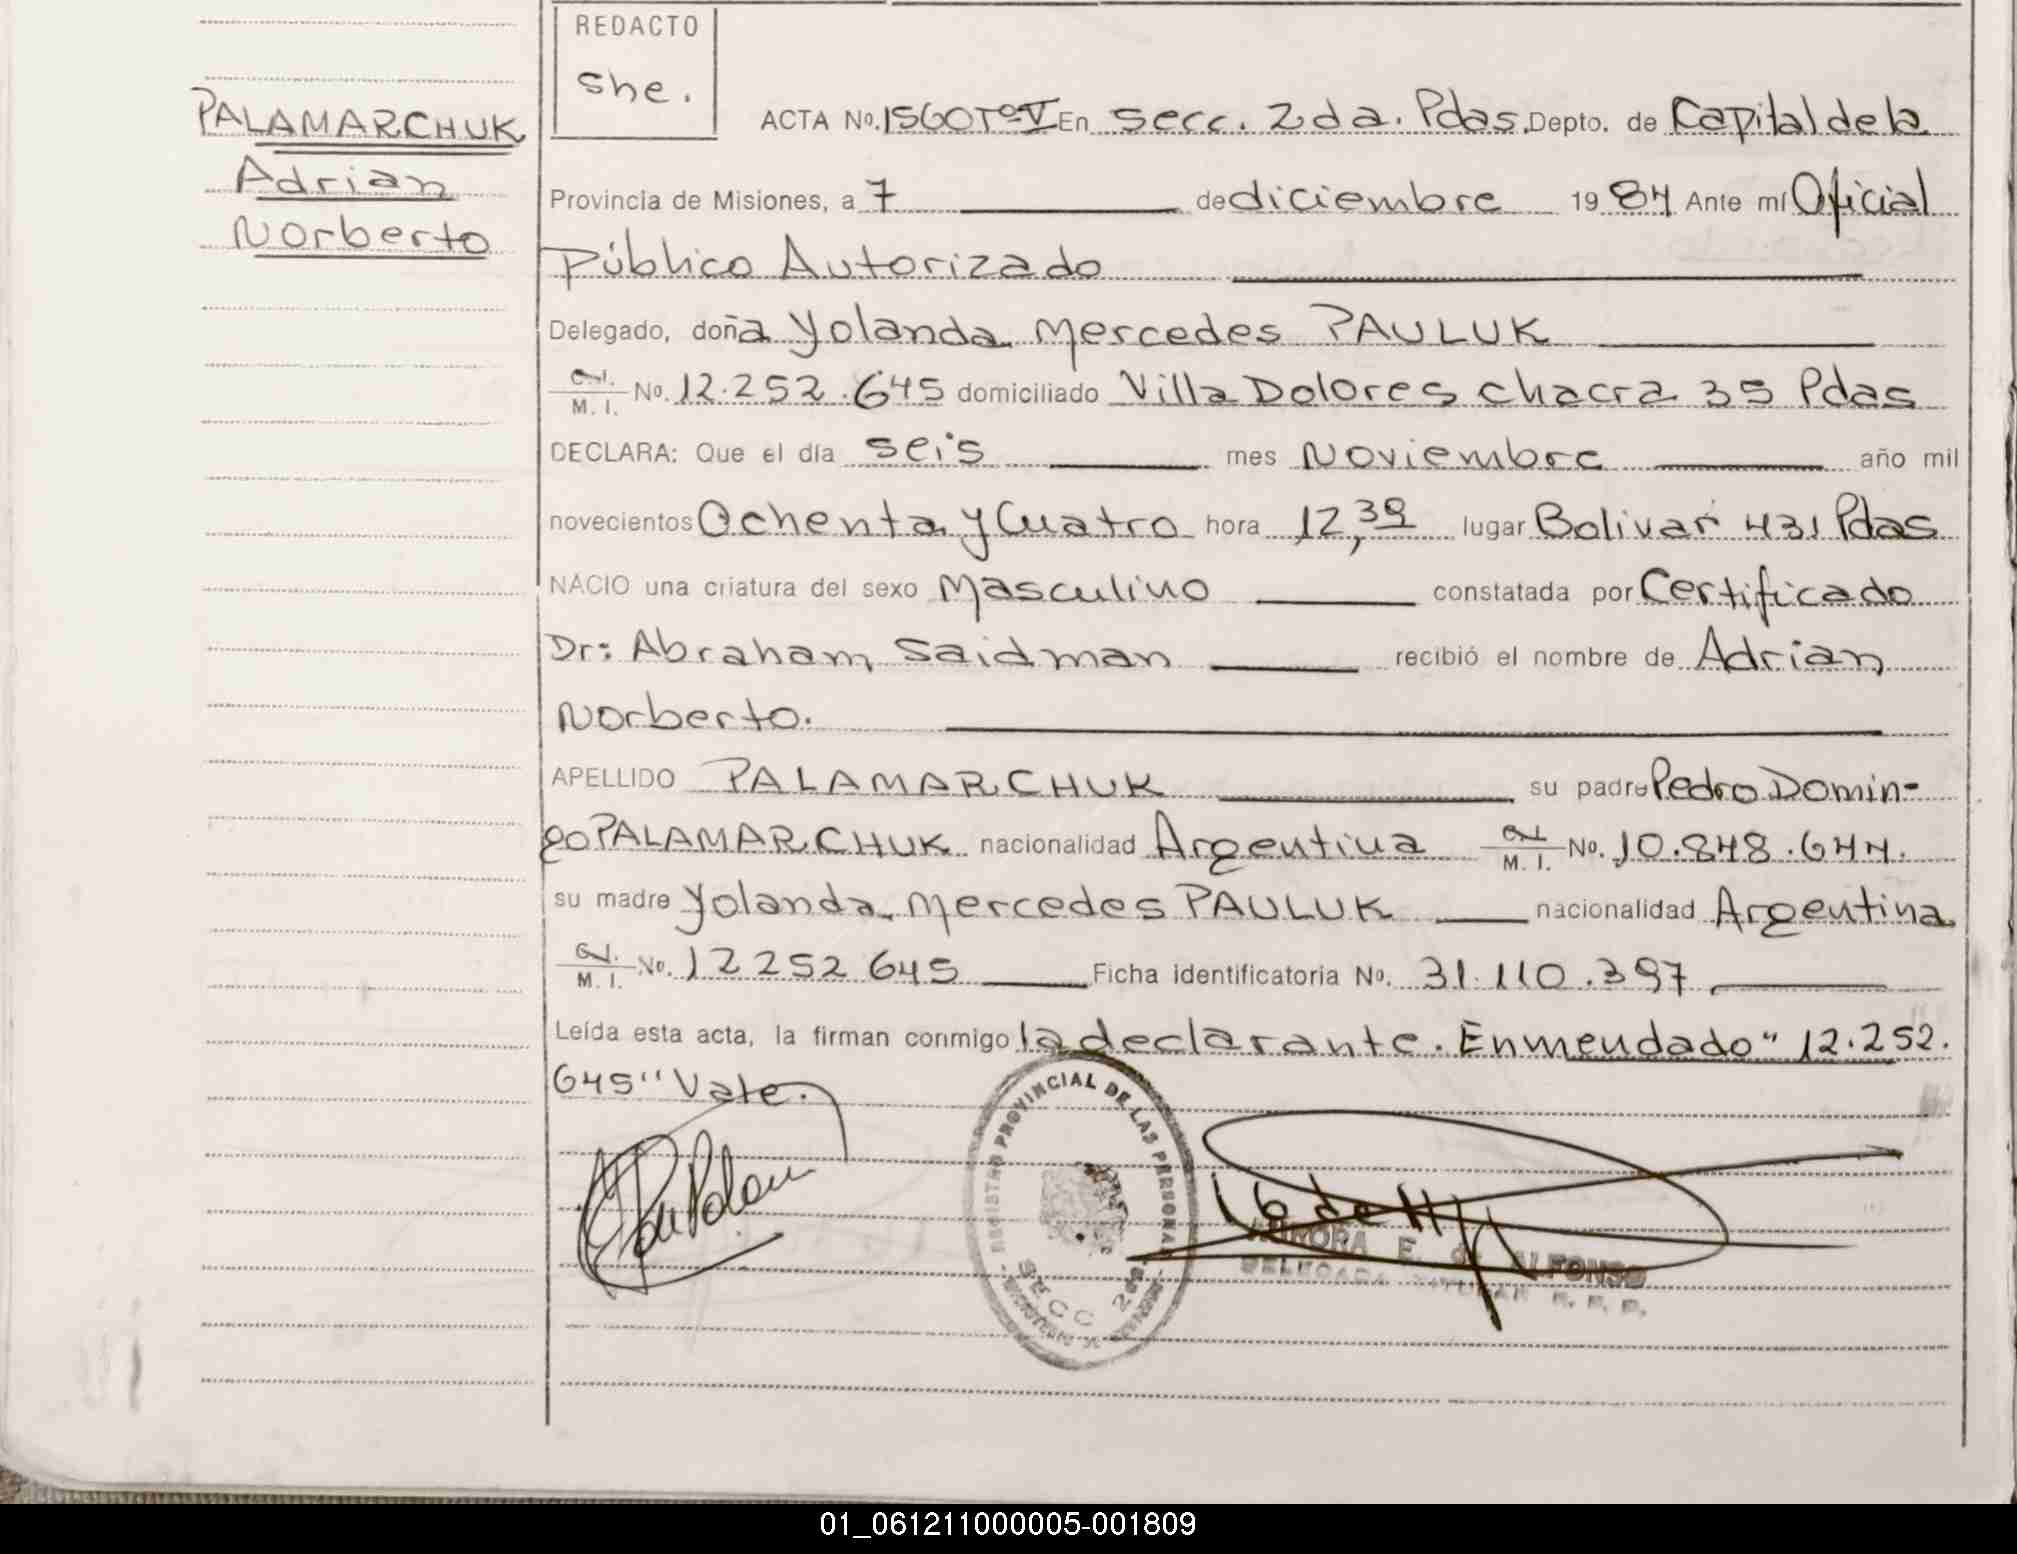 REDACTO
She.
PALAMARCHUK
Adrian
Norberto
ACTA No. 1560 Tº V En secc. 2da. Pdas. Depto. de Capital de la
Provincia de Misiones, a 7 de diciembre 1984 Ante mí Oficial
Público Autorizado
Delegado, doña Yolanda Mercedes PAULUK
C.I. M. I. No. 12.252.645 domiciliado Villa Dolores chacra 35 Pdas
DECLARA: Que el día seis mes Noviembre año mil
novecientos Ochenta y Cuatro hora 12,30 lugar Bolivar 431 Pdas
NACIO una criatura del sexo Masculino constatada por Certificado
Dr: Abraham Saidman recibió el nombre de Adrian
Norberto.
APELLIDO PALAMARCHUK su padre Pedro Domin-
go PALAMARCHUK nacionalidad Argentina C.I. M. I. No. 10.848.644.
su madre Yolanda Mercedes PAULUK nacionalidad Argentina
C.I. M. I. No. 12252645 Ficha identificatoria No. 31.110.397
Leída esta acta, la firman conmigo la declarante. Enmendado "12.252.
645" Vale.
REGISTRO PROVINCIAL DE LAS PERSONAS
SECC 2da
E. de ALFONSO
DELEGADA TITULAR R. P. P.
01_061211000005-001809